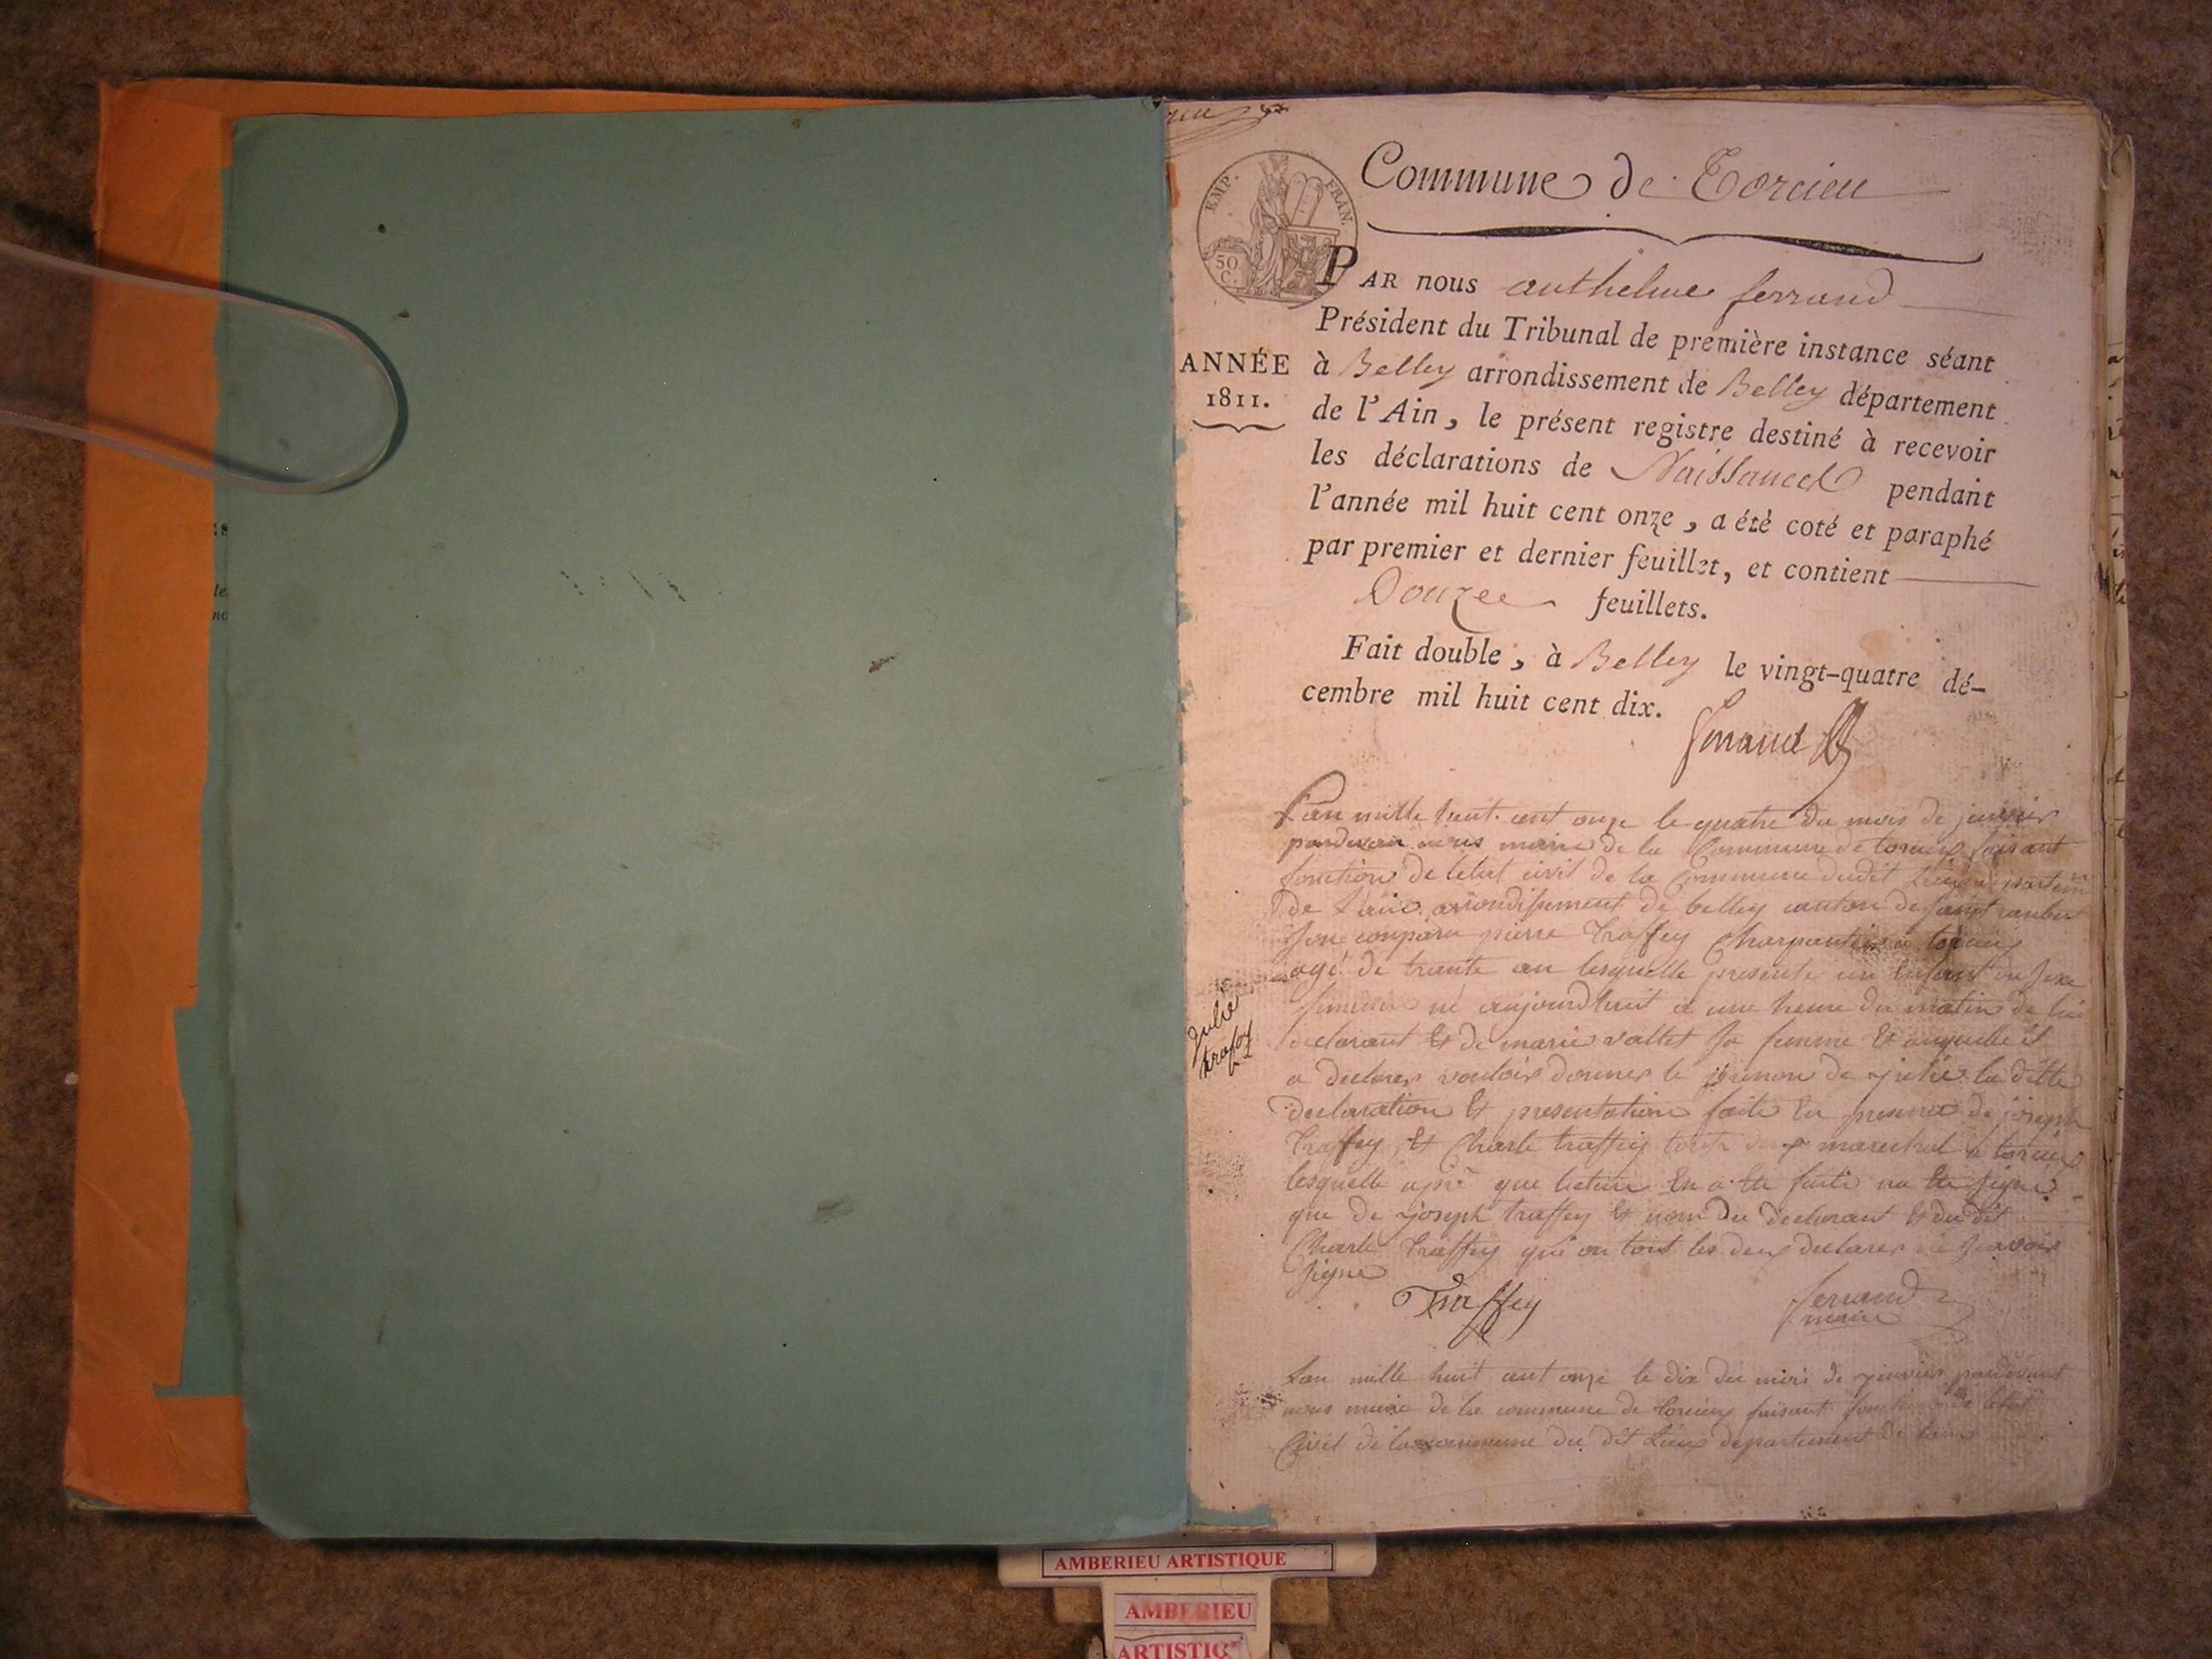 EMP. FRAN.
50
C.
Commune de Torcieu
PAR nous anthelme ferrand
Président du Tribunal de première instance séant
ANNÉE
1811.
à Belley arrondissement de Belley département
de l'Ain, le présent registre destiné à recevoir
les déclarations de Naissances pendant
l'année mil huit cent onze, a été coté et paraphé
par premier et dernier feuillet, et contient
Douze feuillets.
Fait double, à Belley le vingt-quatre dé-
cembre mil huit cent dix.
ferrand
Lan mille huit cent onze le quatre du mois de janvier
pardevan nous maire de la Commune de torcieu faisant
fonction de letat civil de la Commune dudit Lieu
de Lain arrondisement de belley canton de saint rambert
compara pierre Traffey Charpantier a torcieu
agé de trante an lesquelle presente un Enfant du sexe
feminin né aujourdhuit a une heure du matin de lui
declarant Et de marie vallet sa femme Et auquelle il
a declarer vouloir donner le prenon de julie la ditte
declaration Et presentation faite En presence de joseph
Traffey Et Charle traffey marechal a torcieu
lesquelle apré que lecture En a Eté faite na Eté signé
que de joseph traffey Et non du declarant Et du dit
Charle Traffey qui on tout les deux declarer ne savoir
signe
julie
trafey
Traffey
ferrand
maire
Lan mille huit cent onze le dix du mois de janvier pardevant
nous maire de la commune de torcieu faisant fonction de letat
Civil de la commune du dit Lieu departement de lain
AMBERIEU ARTISTIQUE
AMBERIEU
ARTISTIQ